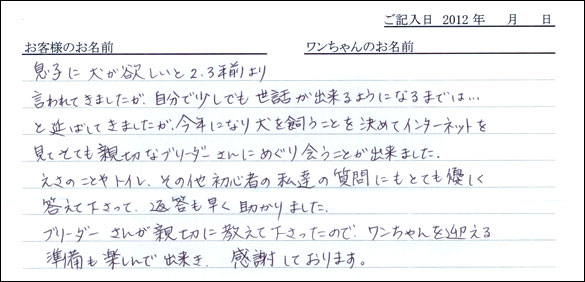 ご記入日 2012年 月 日
お客様のお名前 ワンちゃんのお名前
息子に犬が欲しいと2.3年前より
言われてきましたが、自分で少しでも世話が出来るようになるまでは…
と延ばしてきましたが、今年になり犬を飼うことを決めてインターネットを
見てとても親切なブリーダーさんにめぐり会うことが出来ました。
えさのことやトイレ、その他初心者の私達の質問にもとても優しく
答えて下さって、返答も早く助かりました。
ブリーダーさんが親切に教えて下さったので、ワンちゃんを迎える
準備も楽しんで出来き、感謝しております。